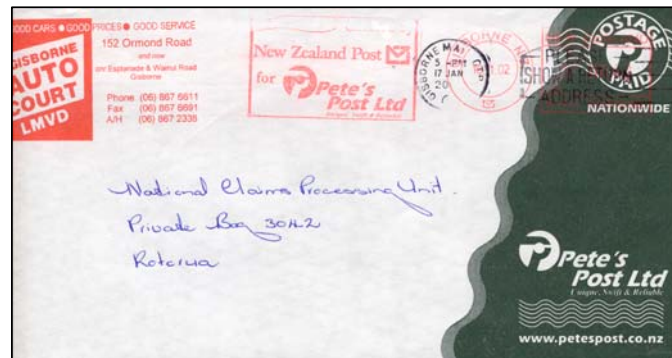 GOOD CARS ● GOOD PRICES ● GOOD SERVICE
GISBORNE
AUTO
COURT
LMVD
152 Ormond Road
and now
cnr Esplanade & Wainui Road
Gisborne
Phone (06) 867 6611
Fax (06) 867 6691
A/H (06) 867 2338
New Zealand Post
for Pete's
Post Ltd
Unique, Swift & Reliable
GISBORNE MAIL
5 -PM
17 JAN
20
PLEASE
SHOW A RETURN
ADDRESS
POSTAGE
PAID
NATIONWIDE
National Claims Processing Unit.
Private Bag
Rotorua
Pete's
Post Ltd
Unique, Swift & Reliable
www.petespost.co.nz